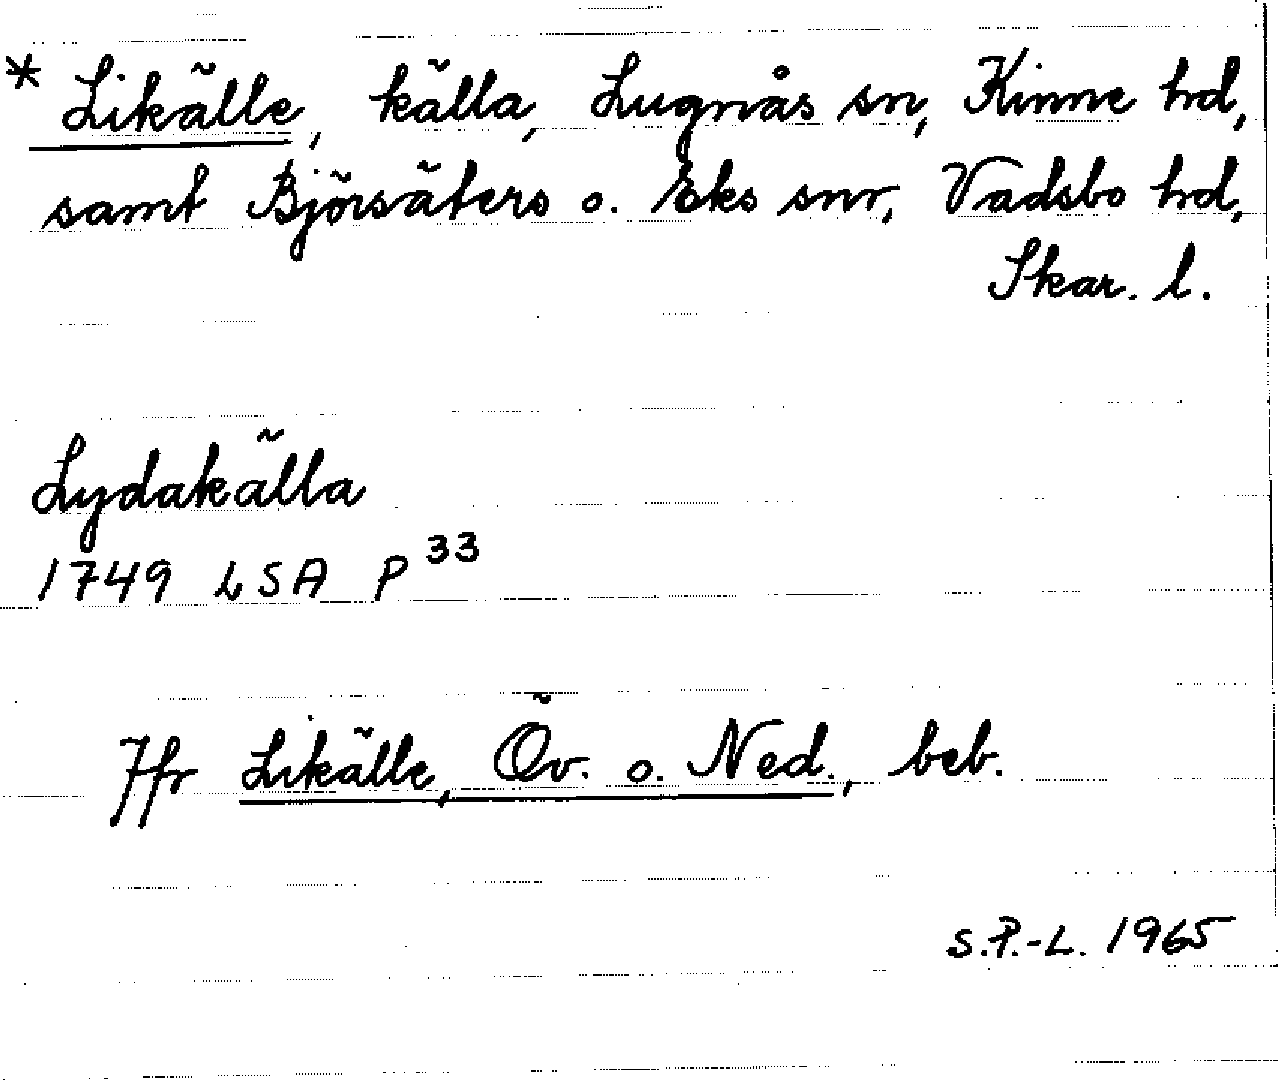 * Likälle, källa, Lugnås sn, Kinne hd,
samt Björsäters o. Eks snr, Vadsbo hd,
Skar. l.
Lydakälla
1749 LSA P 33
Jfr Likälle, Öv. o. Ned., beb.
S.P.-L. 1965